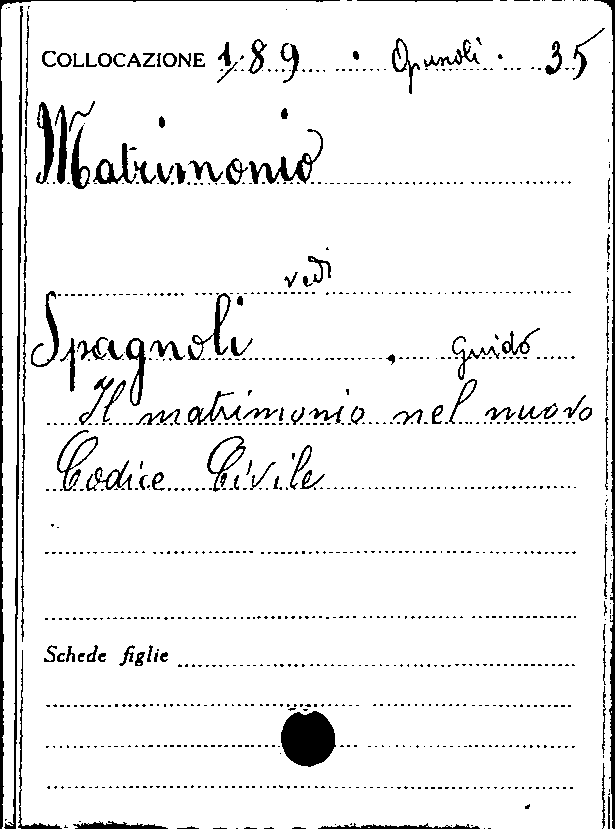 COLLOCAZIONE 189 . Opuscoli . 35
Matrimonio
vedi
Spagnoli, Guido
Il matrimonio nel nuovo
Codice Civile
Schede figlie